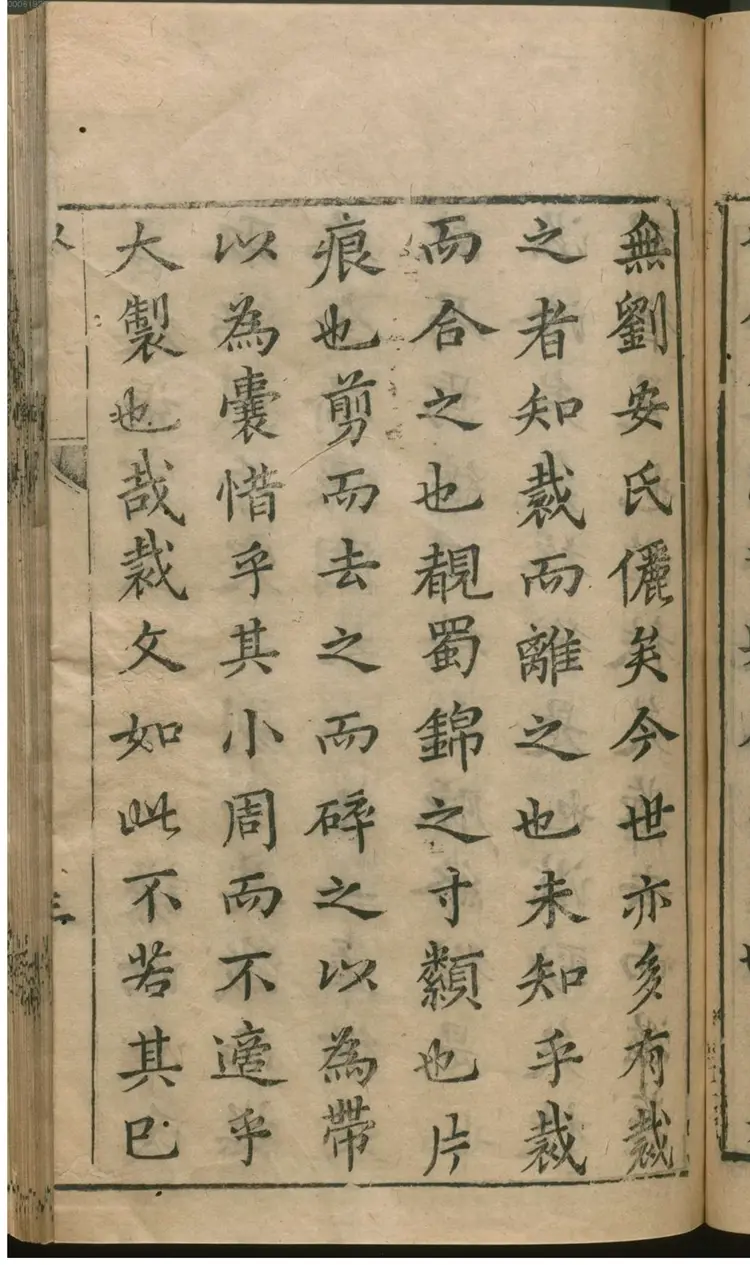 無劉安氏儷矣今世亦多有裁
之者知裁而離之也未知乎裁
而合之也覩蜀錦之寸纇也片
痕也剪而去之而碎之以為帶
以為囊惜乎其小周而不適乎
大製也哉裁文如此不若其已